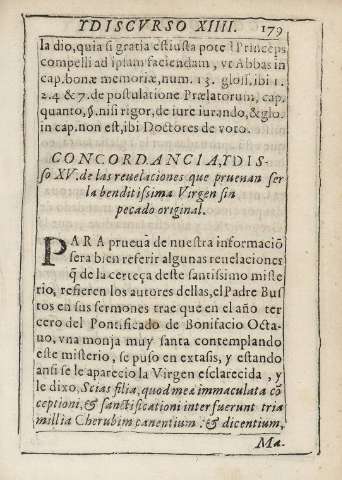 YDISCVRSO XIIII. 179
la dio, quia si gratia est iusta pote ſt Princeps
compelli ad ipſam faciendam, vt Abbas in
cap. bonæ memoriæ, num. 13. gloſſ. ibi 1.
2. 4 & 7. de postulatione Prælatorum, cap.
quanto, §. niſi rigor, de iure iurando, & glo.
in cap. non eſt, ibi Doctores de voto.
CONCORDANCIA, Y DIS-
ſo XV. de las reuelaciones que prueuan ſer
la benditiſsima Virgen ſin
pecado original.
PARA prueuā de nuestra informaciō
ſera bien referir algunas reuelaciones
q̄ de la certeça deſte ſantiſsimo miſte
rio, reſieren los autores dellas, el Padre Buſ
tos en sus ſermones trae que en el año ter
cero del Pontificado de Bonifacio Octa-
uo, vna monja muy ſanta contemplando
eſte miſterio, ſe puſo en extaſis, y eſtando
anſi ſe le aparecio la Virgen eſclarecida, y
le dixo, Scias filia, quod meæ immaculatæ cō
ceptioni, & ſanctificationi interfuerunt tria
millia Cherubim canentium: & dicentium,
Ma-